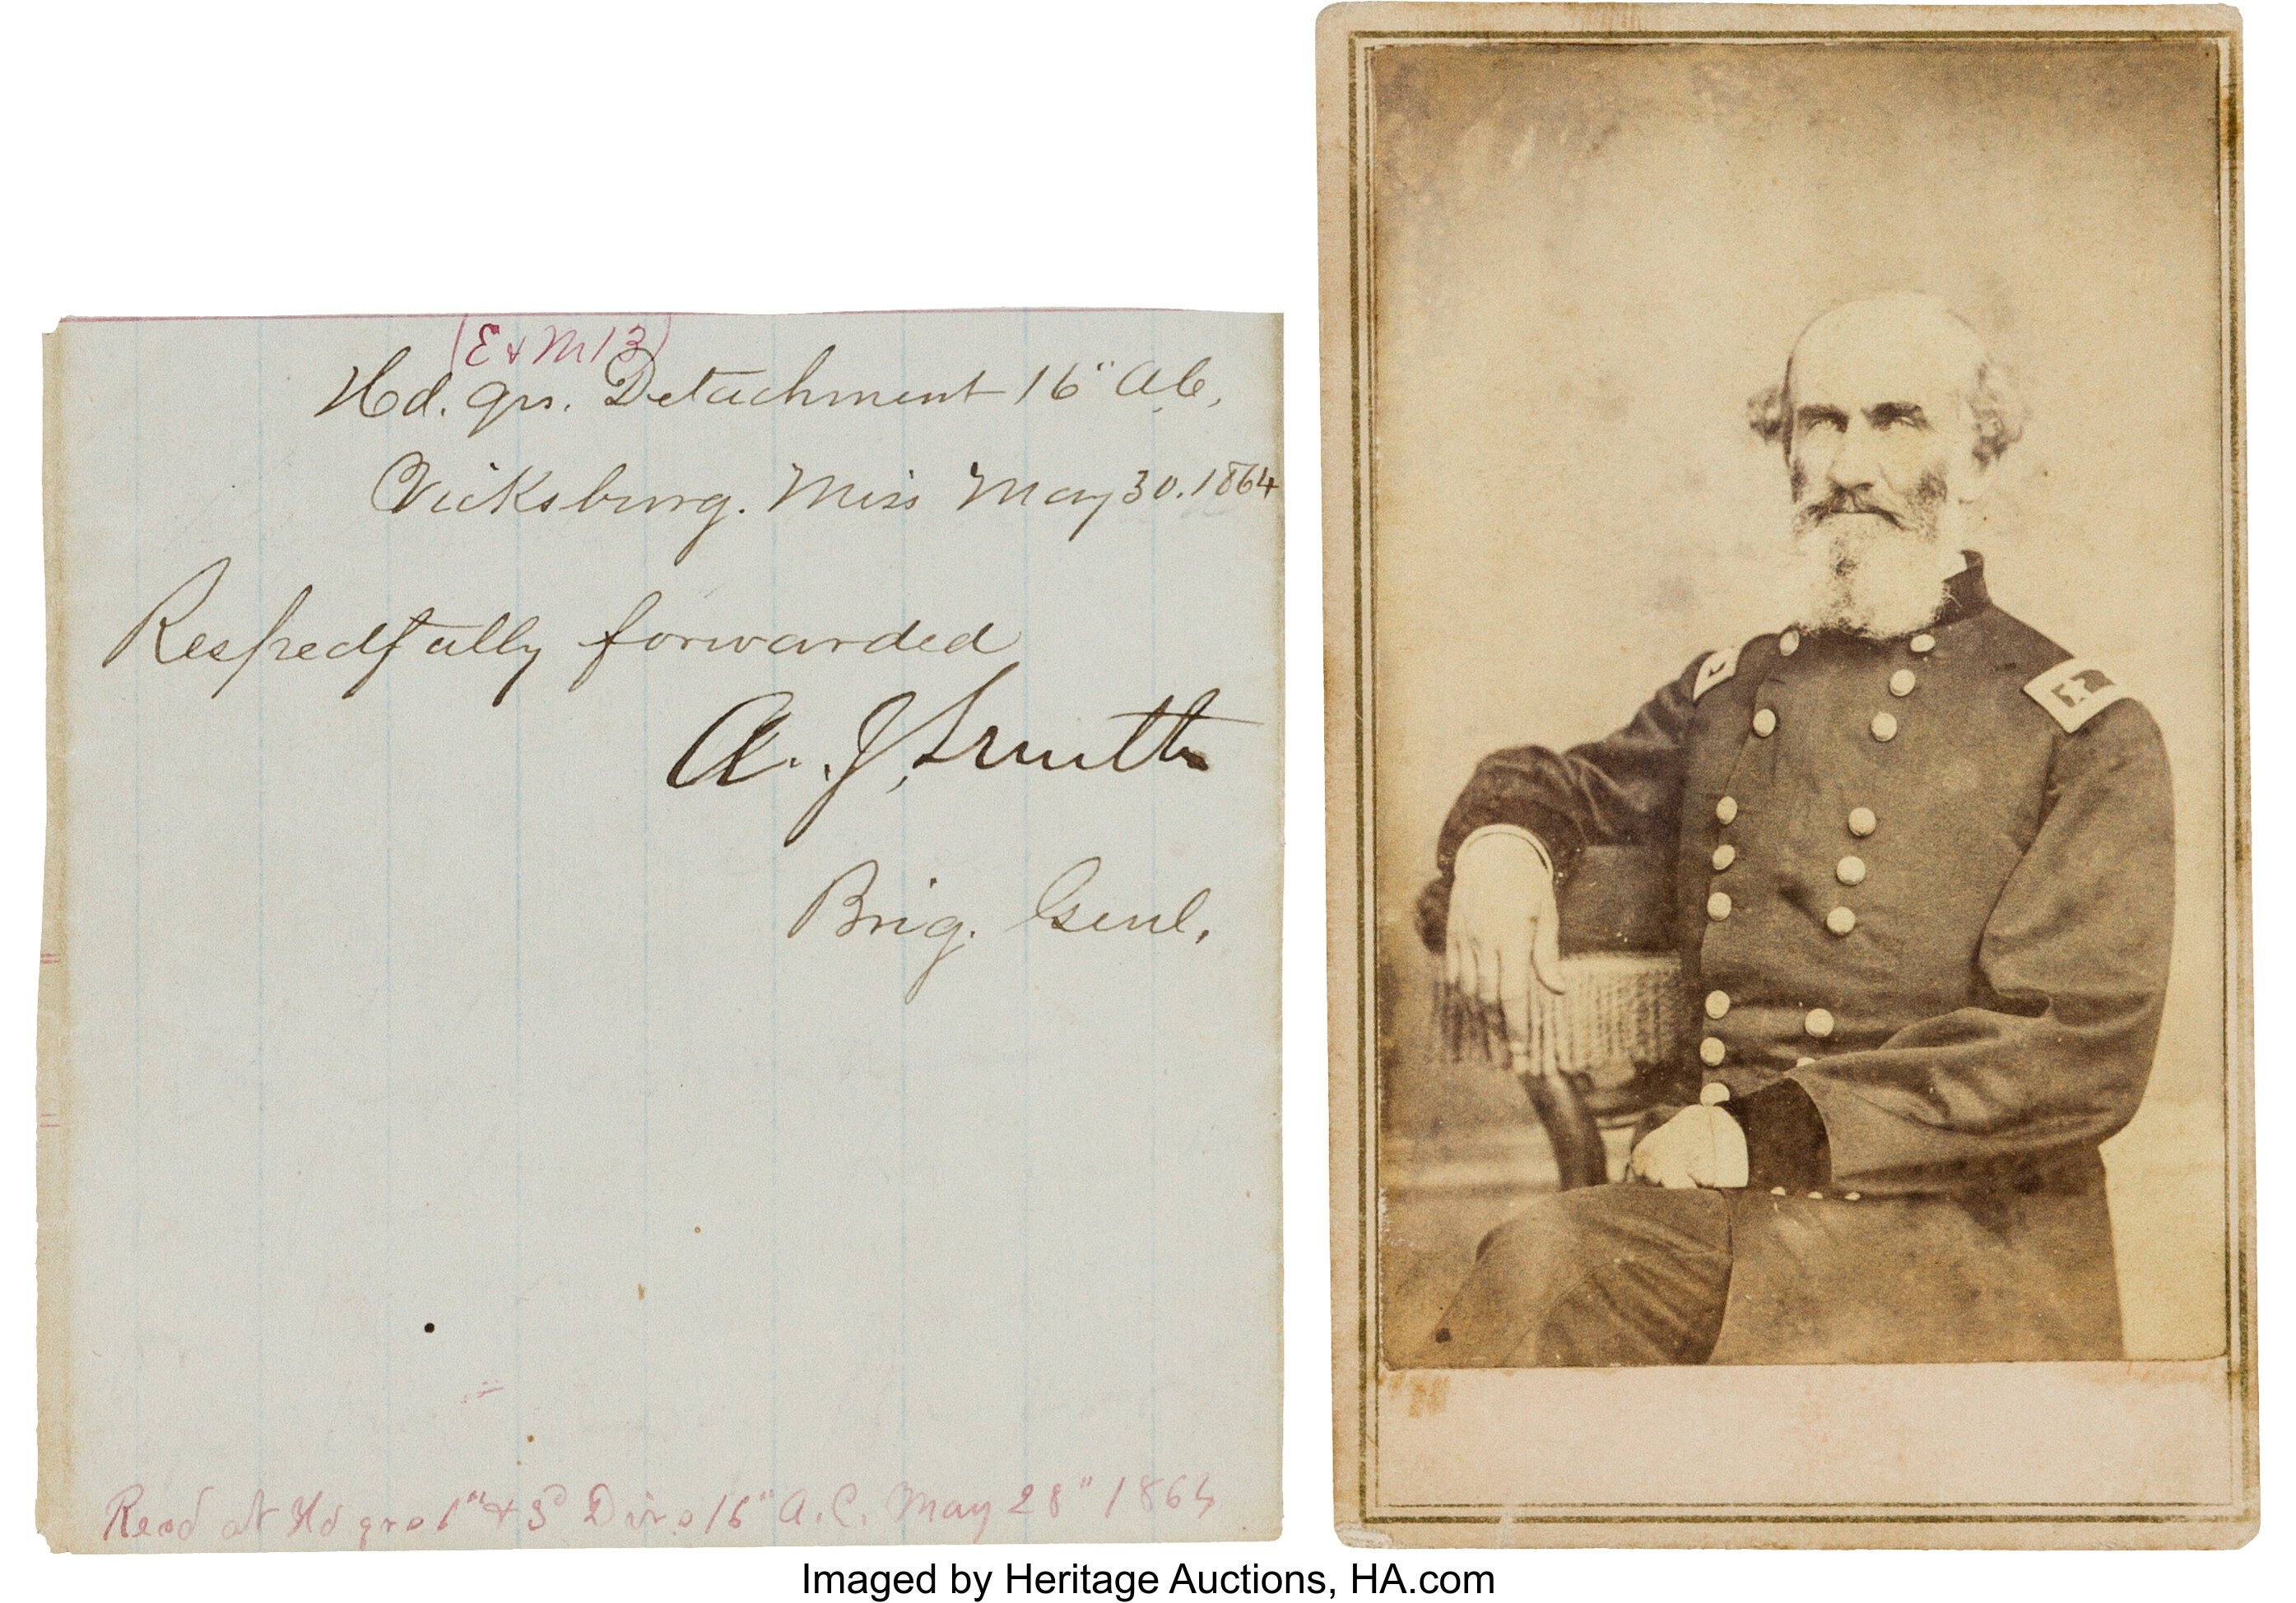 (E & M 13)
Hd. qrs. Detachment 16" A.C,
Vicksburg. Miss May 30. 1864
Respectfully forwarded
A. J. Smith
Brig. Genl.
Recd at Hd qrs 1st & 3d Divs 16" A.C. May 28" 1864
Imaged by Heritage Auctions, HA.com